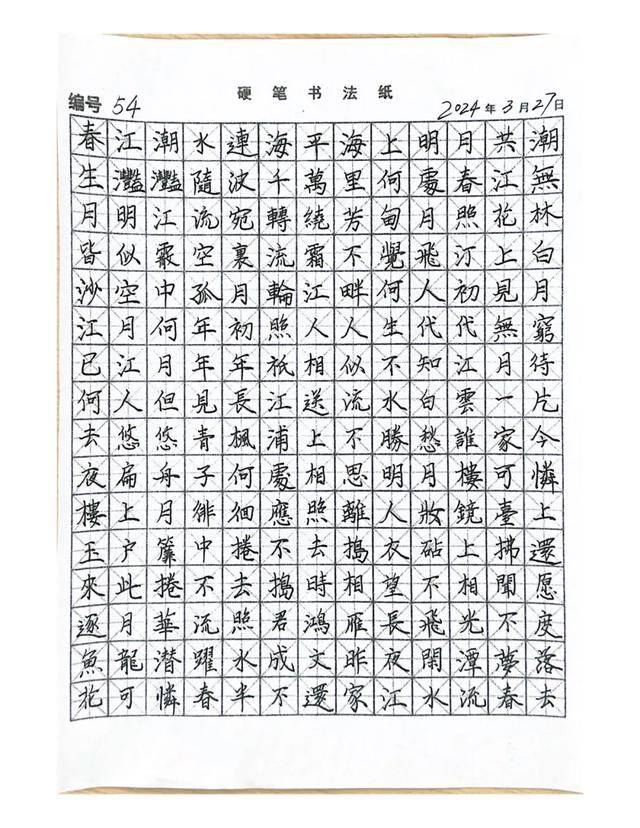 硬笔书法纸
编号 54 2024年3月27日
春江潮水連海平海上明月共潮
生灩灩隨波千萬里何處春江無
月明江流宛轉繞芳甸月照花林
皆似霰空裏流霜不覺飛汀上白
沙空中孤月輪江畔何人初見月
江月何年初照人人生代代無窮
已江月年年祇相似不知江月待
何人但見長江送流水白雲一片
去悠悠青楓浦上不勝愁誰家今
夜扁舟子何處相思明月樓可憐
樓上月徘徊應照離人妝鏡臺上
玉戶簾中捲不去搗衣砧上拂還
來此捲不去搗時相望不相聞愿
逐月華流照君鴻雁長飛光不度
魚龍潛躍水成文昨夜閑潭夢落
花可憐春半不還家江水流春去